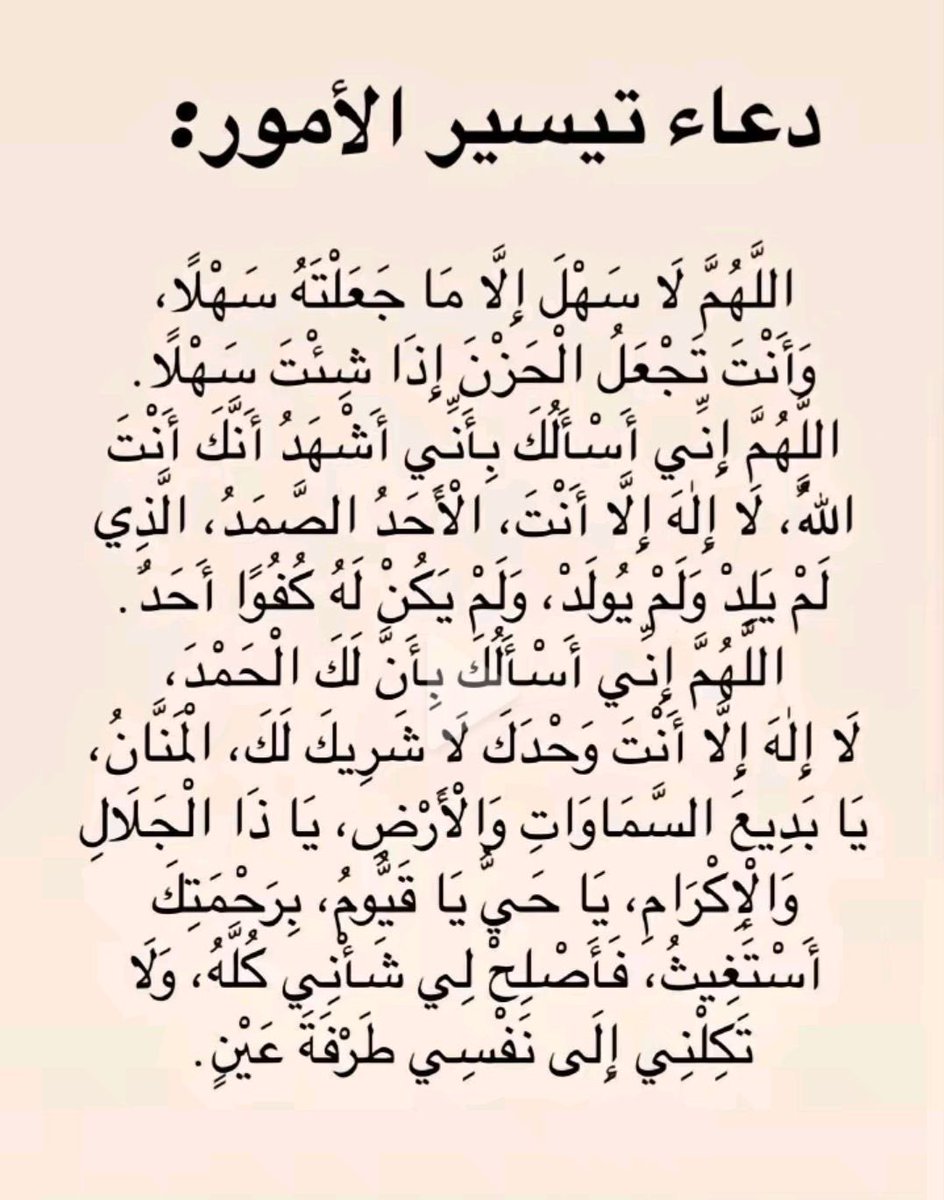 دعاء تيسير الأمور:
اللَّهُمَّ لَا سَهْلَ إِلَّا مَا جَعَلْتَهُ سَهْلًا،
وَأَنْتَ تَجْعَلُ الْحَزْنَ إِذَا شِئْتَ سَهْلًا.
اللَّهُمَّ إِنِّي أَسْأَلُكَ بِأَنِّي أَشْهَدُ أَنَّكَ أَنْتَ
اللهُ، لَا إِلٰهَ إِلَّا أَنْتَ، الْأَحَدُ الصَّمَدُ، الَّذِي
لَمْ يَلِدْ وَلَمْ يُولَدْ، وَلَمْ يَكُنْ لَهُ كُفُوًا أَحَدٌ.
اللَّهُمَّ إِنِّي أَسْأَلُكَ بِأَنَّ لَكَ الْحَمْدَ،
لَا إِلٰهَ إِلَّا أَنْتَ وَحْدَكَ لَا شَرِيكَ لَكَ، الْمَنَّانُ،
يَا بَدِيعَ السَّمَاوَاتِ وَالْأَرْضِ، يَا ذَا الْجَلَالِ
وَالْإِكْرَامِ، يَا حَيُّ يَا قَيُّومُ، بِرَحْمَتِكَ
أَسْتَغِيثُ، فَأَصْلِحْ لِي شَأْنِي كُلَّهُ، وَلَا
تَكِلْنِي إِلَى نَفْسِي طَرْفَةَ عَيْنٍ.